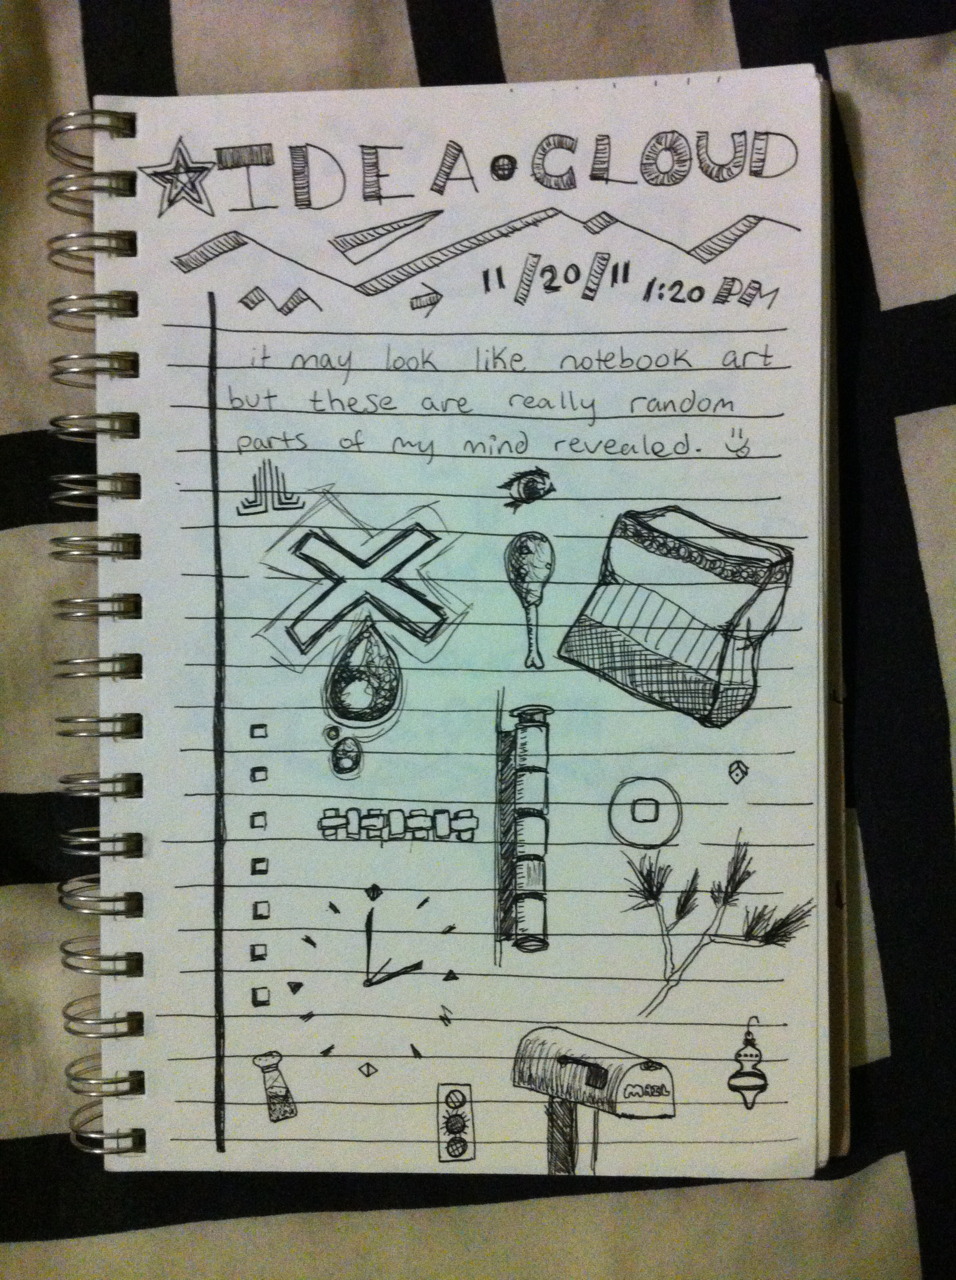 IDEA • CLOUD
11/20/11 1:20 PM
it may look like notebook art
but these are really random
parts of my mind revealed.
MAIL